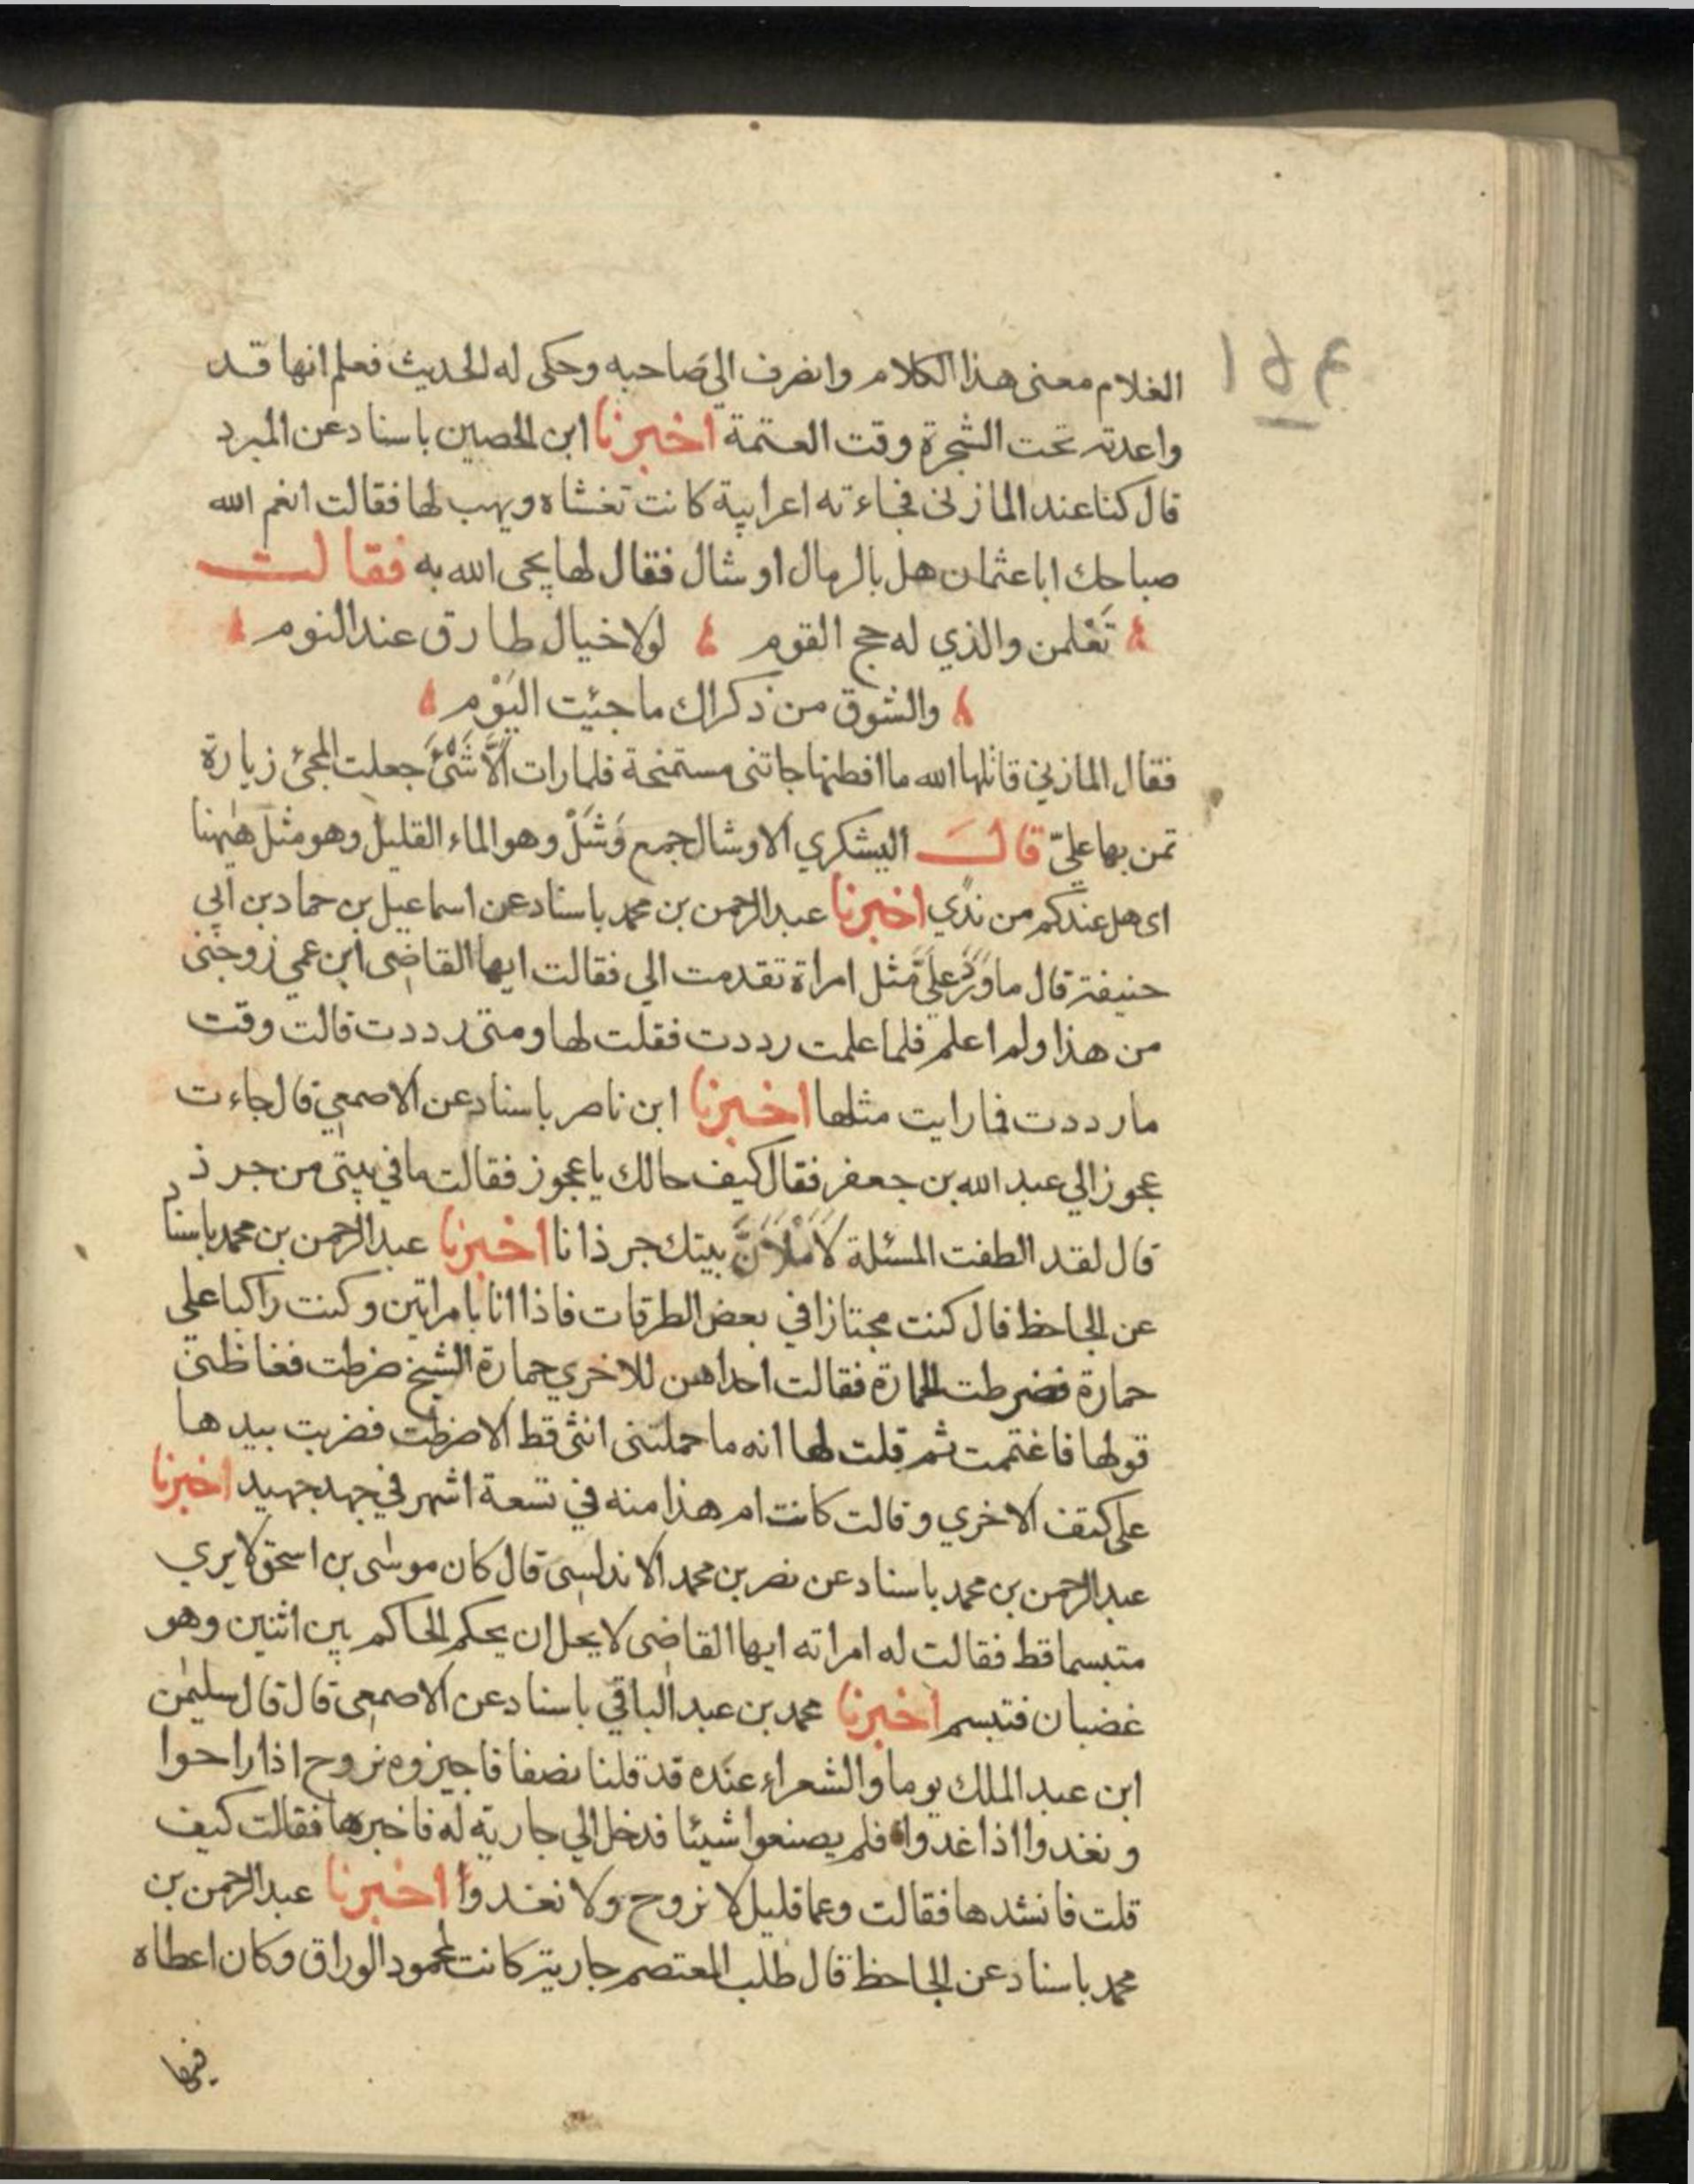 الغلام معنى هذا الكلام وانصرف الي صاحبه وحكى له الحديث فعلم انها قد
واعدته تحت الشجرة وقت العتمة اخبرنا ابن الحصين باسناد عن المبرد
قال كنا عند المازني فجاءته اعرابية كانت تغشاه ويهب لها فقالت انعم الله
صباحك ابا عثمان هل بالرمال اوشال فقال لها يجى الله به فقالت
تَعْلمن والذي له حج القوم لولا خيال طارق عند النوم
والشوق من ذكراك ما جئيت اليَوْم
فقال المازني قاتلها الله ما افطنها جاتنى مستمنحة فلما رات اَلَّا شَئَْ جعلت المجئ زيارة
تمن بها عليّ قالَ اليشكري الاوشال جمع وَشَلْ وهو الماء القليل وهو مثل هٰيهنا
اى هل عندكم من ندًي اخبرنا عبد الرحمن بن محمد باسناد عن اسماعيل بن حماد بن ابي
حنيفة قال ما وَرَدَ عليَّ مثل امراة تقدمت الي فقالت ايها القاضى ابن عمي زوجنى
من هذا ولم اعلم فلما علمت رددت فقلت لها ومتى رددت قالت وقت
ما رددت فما رايت مثلها اخبرنا ابن ناصر باسناد عن الاصمعي قال جاءت
عجوز الي عبد الله بن جعفر فقال كيف حالك يا عجوز فقالت ما في بيتى من جرذ
قال لقد الطفت المسئلة لَاَمْلَاَنَّ بيتك جرذانا اخبرنا عبد الرحمن بن محمد باسناد
عن الجاحظ قال كنت مجتازا في بعض الطرقات فاذا انا بامراتين وكنت راكبا على
حمارة فضرطت الحمارة فقالت احداهن للاخري حمارة الشيخ ضرطت فغاظنى
قولها فاغتممت ثم قلت لها انه ما حملتنى انثى قط الا ضرطت فضربت بيدها
على كتف الاخري وقالت كانت ام هذا منه في تسعة اشهر في جهد جهيد اخبرنا
عبد الرحمن بن محمد باسناد عن نصر بن محمد الاندلسى قال كان موسى بن اسحق لا يري
متبسما قط فقالت له امراته ايها القاضى لا يحل ان يحكم الحاكم بين اثنين وهو
غضبان فتبسم اخبرنا محمد بن عبد الباقي باسناد عن الاصمعى قال قال سليمٰن
ابن عبد الملك يوما والشعراء عنده قد قلنا نصفا فاجيزوه نروح اذا راحوا
ونغدوا اذا غدوا فلم يصنعوا شيئا فدخل الي جارية له فاخبرها فقالت كيف
قلت فانشدها فقالت وعما قليل لا نروح ولا نغدوا اخبرنا عبد الرحمن بن
محمد باسناد عن الجاحظ قال طلب المعتصم جارية كانت لمحمود الوراق وكان اعطاه
فيها